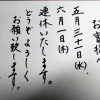 お客様
五月三十一日(水)
六月一日(木)
連休いたします。
どうぞよろしく
お願い致します。